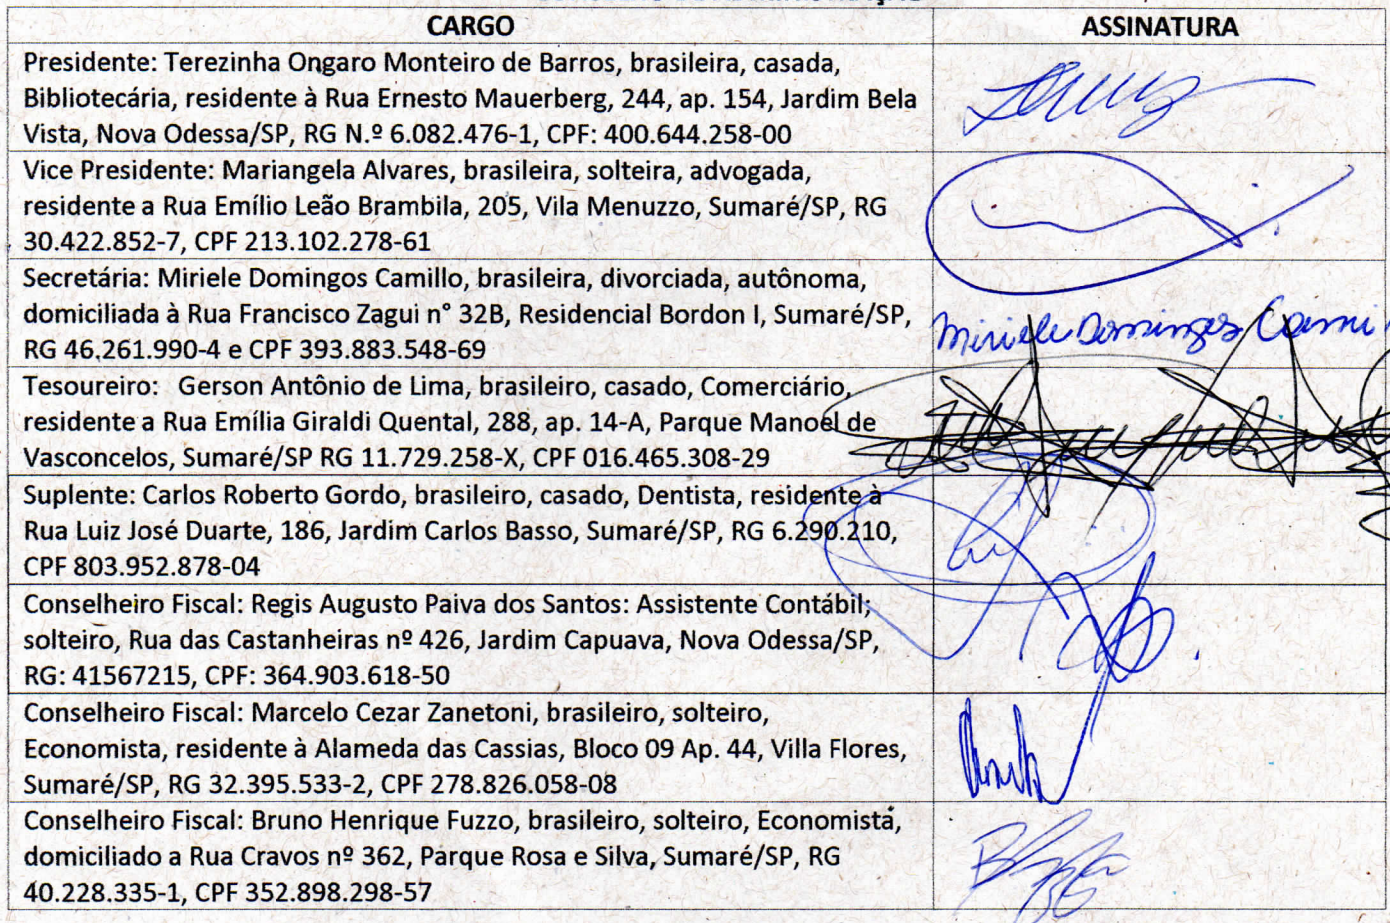 CARGO
ASSINATURA
Presidente: Terezinha Ongaro Monteiro de Barros, brasileira, casada,
Bibliotecária, residente à Rua Ernesto Mauerberg, 244, ap. 154, Jardim Bela
Vista, Nova Odessa/SP, RG N.º 6.082.476-1, CPF: 400.644.258-00
Vice Presidente: Mariangela Alvares, brasileira, solteira, advogada,
residente a Rua Emílio Leão Brambila, 205, Vila Menuzzo, Sumaré/SP, RG
30.422.852-7, CPF 213.102.278-61
Secretária: Miriele Domingos Camillo, brasileira, divorciada, autônoma,
domiciliada à Rua Francisco Zagui n° 32B, Residencial Bordon I, Sumaré/SP,
RG 46.261.990-4 e CPF 393.883.548-69
Miriele Domingos Cami
Tesoureiro: Gerson Antônio de Lima, brasileiro, casado, Comerciário,
residente a Rua Emília Giraldi Quental, 288, ap. 14-A, Parque Manoel de
Vasconcelos, Sumaré/SP RG 11.729.258-X, CPF 016.465.308-29
Suplente: Carlos Roberto Gordo, brasileiro, casado, Dentista, residente à
Rua Luiz José Duarte, 186, Jardim Carlos Basso, Sumaré/SP, RG 6.290.210,
CPF 803.952.878-04
Conselheiro Fiscal: Regis Augusto Paiva dos Santos: Assistente Contábil;
solteiro, Rua das Castanheiras nº 426, Jardim Capuava, Nova Odessa/SP,
RG: 41567215, CPF: 364.903.618-50
Conselheiro Fiscal: Marcelo Cezar Zanetoni, brasileiro, solteiro,
Economista, residente à Alameda das Cassias, Bloco 09 Ap. 44, Villa Flores,
Sumaré/SP, RG 32.395.533-2, CPF 278.826.058-08
Conselheiro Fiscal: Bruno Henrique Fuzzo, brasileiro, solteiro, Economista,
domiciliado a Rua Cravos nº 362, Parque Rosa e Silva, Sumaré/SP, RG
40.228.335-1, CPF 352.898.298-57